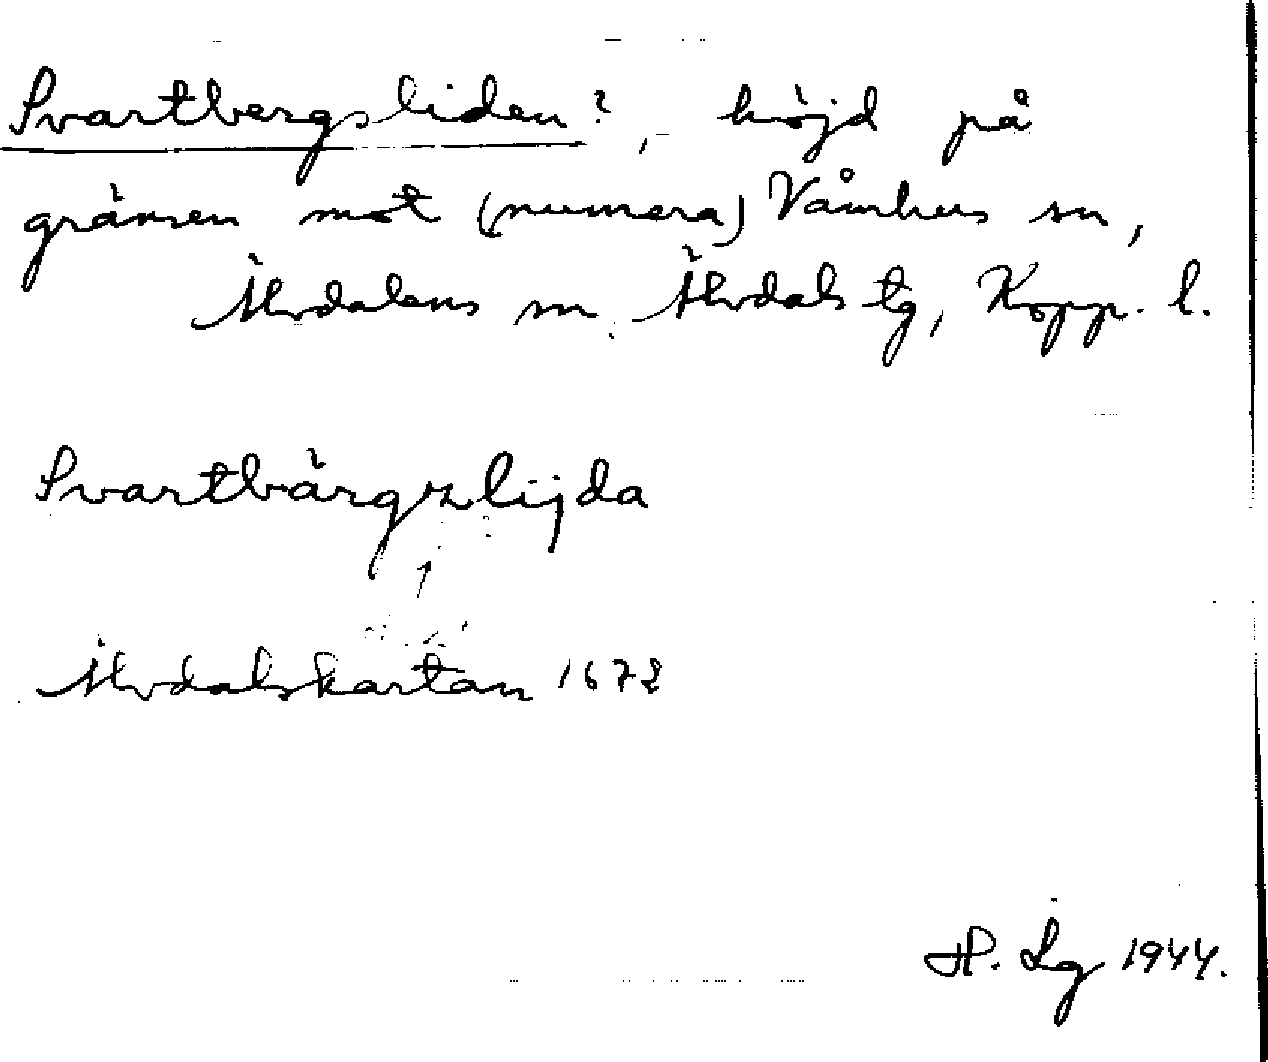 Svartbergsliden?, höjd på
gränsen mot (numera) Våmhus sn,
Älvdalens sn, Älvdals tg, Kopp. l.
Svartbärgzlijda
Älvdalskartan 1672
H. Lg 1944.